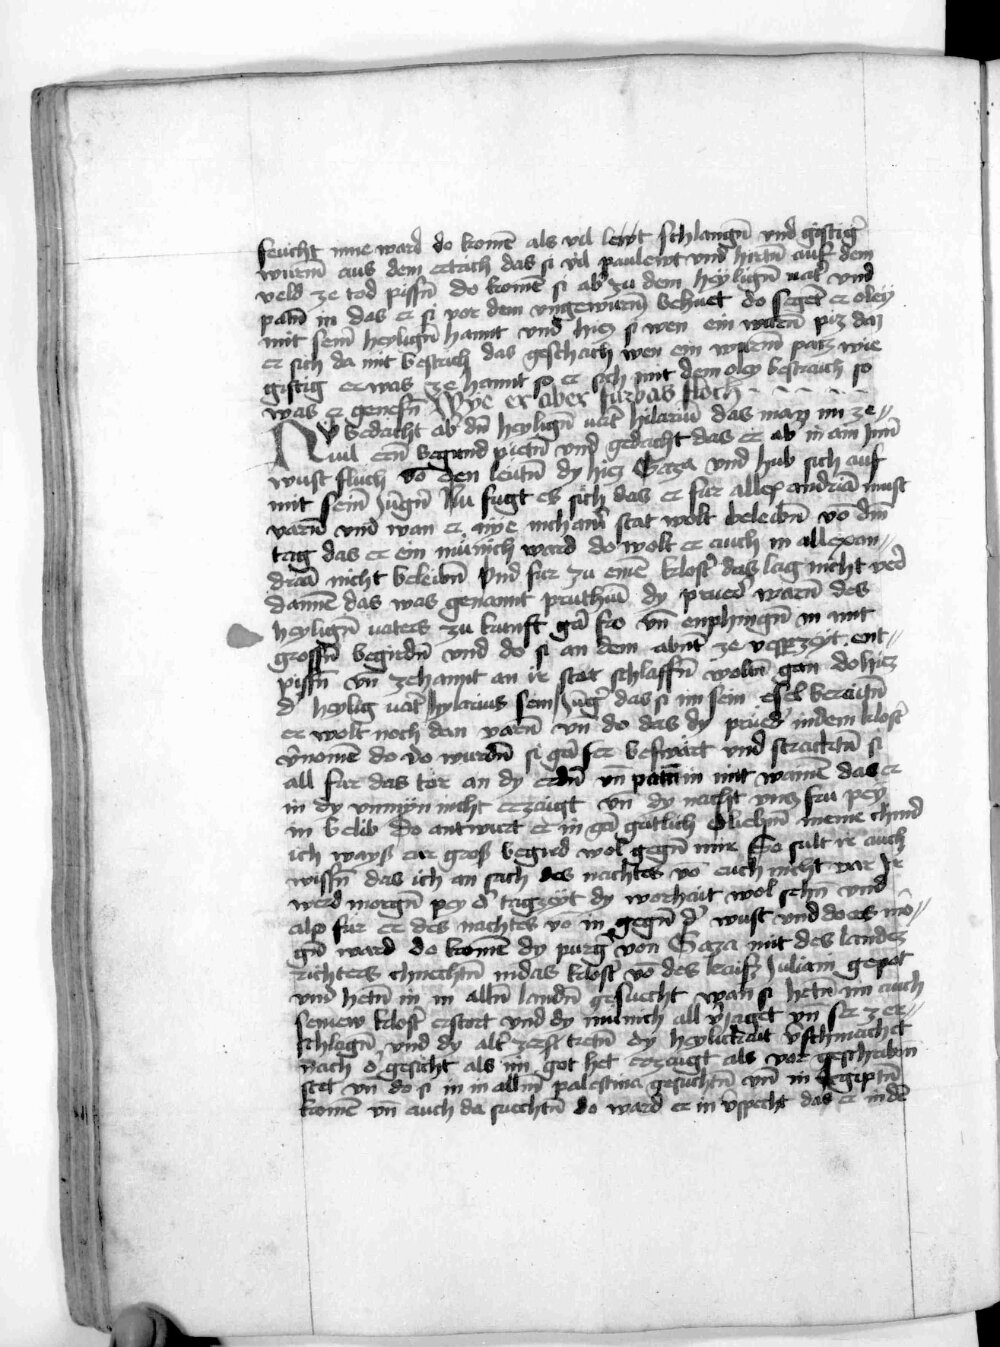 feucht inne ward do komē als vil lewt schlangn̄ vnd giftig̉
wurm̄ aus dem ertrich das si vil paulewt vnd hirtn̄ auf dem
veld ze tod pissn̄ do komē si ab̉ zu dem heylign̄ vat̉ vnd
patn̄ in das er si vor dem vngewurm̄ behuet do segēt er oley
mit sein̄ heylign̄ hannt vnd hiez si wen ein wurm̄ piz daz
er sich da mit bestrich das geschach wen ein wurm̄ patz wie
giftig er was ze hannt so er sich mit dem oley bestraich so
was er genesn̄ Wye er aber furbas floch
Nv bedacht ab̉ dn̄ heylign̄ vat̉ hilariū das man im ze⸗
vuil ern̄ begund pietn̄ vnd gedacht das er ab̉ in ain
wust fluch vō den leutn̄ dy hiez Gaza vnd hub sich auf
mit sein̄ Jūgn̄ Nu fugt es sich das er fur allexandriā must
varn̄ vnd wan er nye in chain̉ stat wolt beleibn̄ vō dm̄
tag das er ein munich ward do wolt er auch in allexan⸗
driā nicht beleibn̄ vnd fur zu einē klost̉ das lag nicht verr̉
dannē das was genannt pruthiū dy prued̉ warn̄ des
heylign̄ vaters zu kunft gā fro vn̄ enphingn̄ in mit
grossn̄ begirdn̄ vnd do si an dem abnt ze vesperzeit ent⸗
pissn̄ vn̄ zehannt an ir stat schlaffn̄ woltn̄ gan do hiez
d̉ heylig vat̉ hylarius sein Jūg̉ das si im sein esel beraitn̄
er wolt noch dan varn̄ vn̄ do das dy prued̉ in dem klost̉
v̉nomē do vo wurdn̄ si gā ser beswart vnd stracktn̄ si
all fur das tor an dy erdn̄ vn̄ patn̄ in mit wainē das er
in dy vnmyn nicht erzaigt vn̄ dy nacht vnz fru pey
in belib do antwurt er in gā gutlich O liebn̄ meine chind̉
ich wayss ewr gross begird wol gegn̄ mir So sult ir auch
wissn̄ das ich an sach des nachtes vō euch nicht var Ir
werd morgn̄ pey d̉ tagzeyt dy warhait wol sehn̄ vnd
also fur er des nachtes vō in gegn̄ d̉ wust vnd do es mo⸗
gn̄ ward do komē dy purg̉ von Gaza mit des landez
richters chnechtn̄ in das klost̉ vō des kaisers Juliani gepot
vnd hetn̄ in in alln̄ landn̄ gesuecht wan si hetn̄ im auch
seinew klost̉ erstort vnd dy munich all v̉jaget vn̄ ser zer⸗
schlagn̄ vnd dy alt̉ zerstretn̄ dy heylichait v̉schmachet
nach d̉ gesicht als im got het erzaigt als vor geschribn̄
stet vn̄ do si in in alln̄ palestina gesuchtn̄ vnd in Egiptn̄
komē vn̄ auch da suechtn̄ do ward er in v̉specht das er in dē